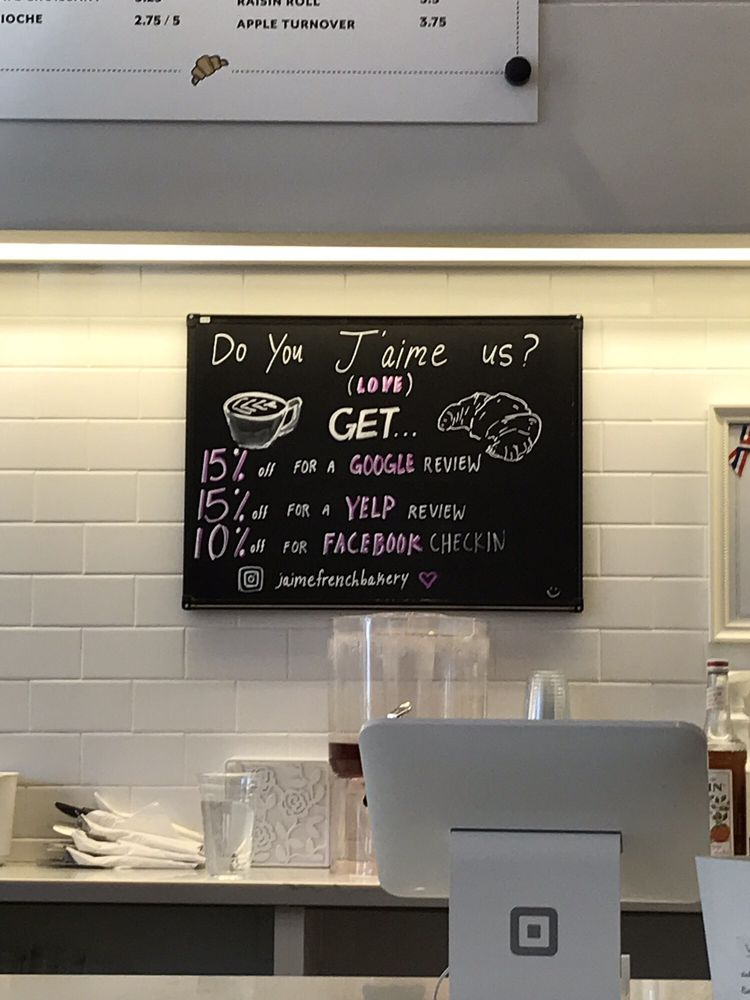 RAISIN ROLL
IOCHE 2.75 / 5
APPLE TURNOVER 3.75
Do You J'aime us?
(LOVE)
GET...
15% off FOR A GOOGLE REVIEW
15% off FOR A YELP REVIEW
10% off FOR FACEBOOK CHECKIN
jaimefrenchbakery